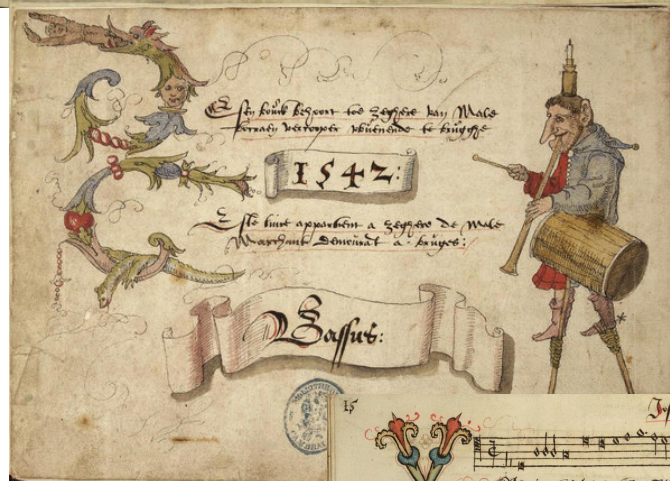 bouck behoort toe zeghere van Male
vercooper te brugghe
1542:
livre appartient a zeghere de Male
Marchant demeurāt a bruges:
Bassus:
15